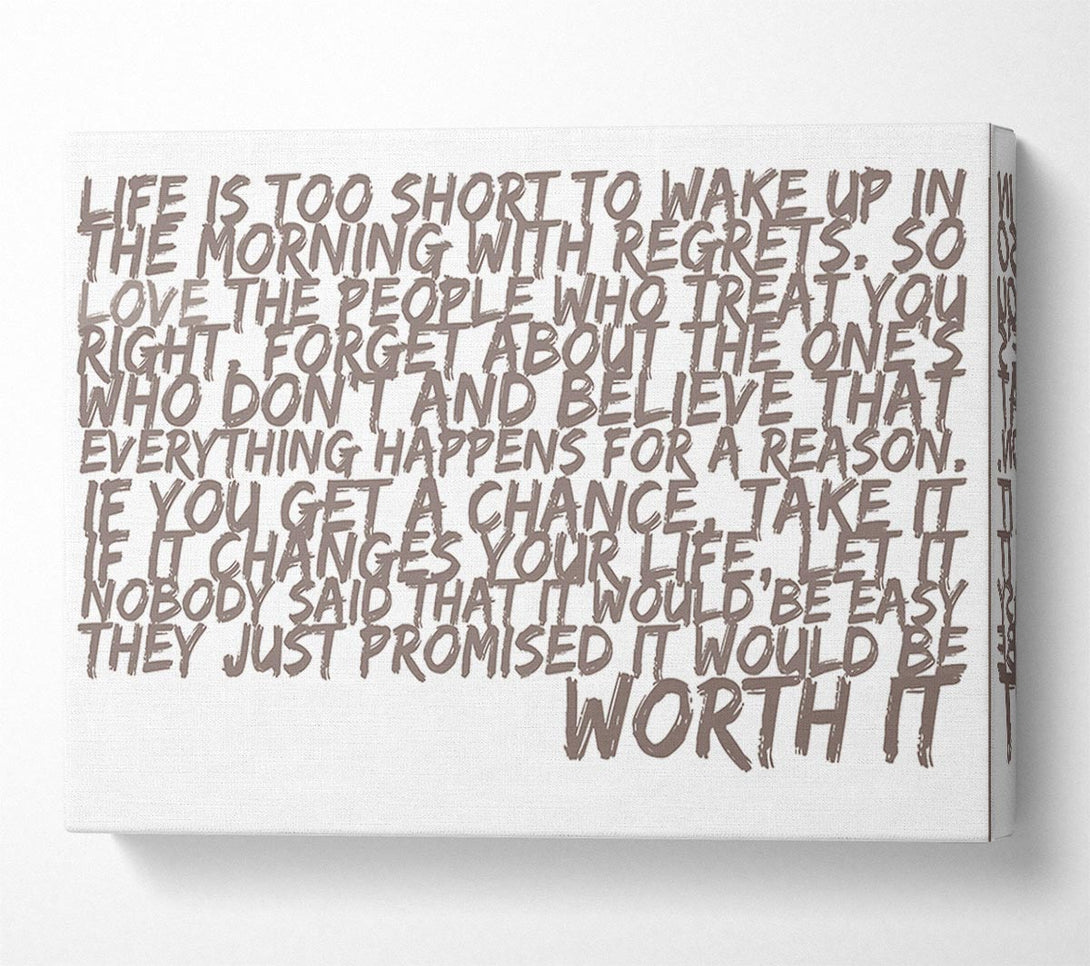 LIFE IS TOO SHORT TO WAKE UP IN
THE MORNING WITH REGRETS. SO
LOVE THE PEOPLE WHO TREAT YOU
RIGHT, FORGET ABOUT THE ONE'S
WHO DON'T AND BELIEVE THAT
EVERYTHING HAPPENS FOR A REASON.
IF YOU GET A CHANCE, TAKE IT
IF IT CHANGES YOUR LIFE, LET IT
NOBODY SAID THAT IT WOULD BE EASY
THEY JUST PROMISED IT WOULD BE
WORTH IT